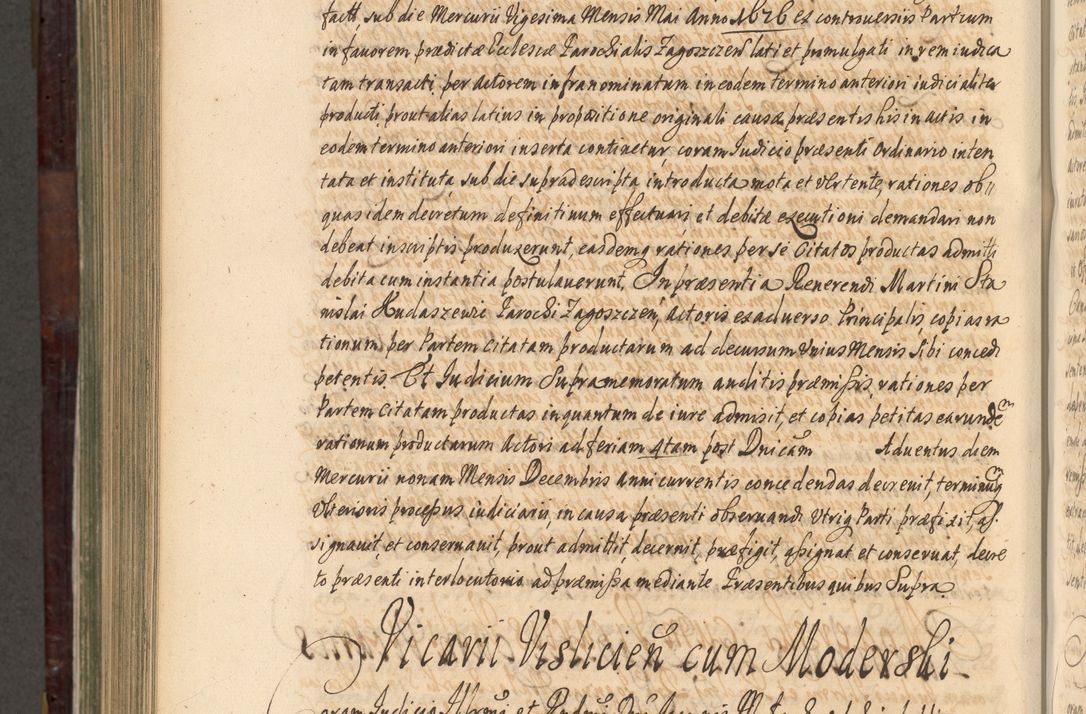 facti sub die Mercurii Vigesima Mensis Mai Anno 1626 ex controversiis Partium
in favorem prædictæ Ecclesiæ Parochialis Zagoszczen̄ lati et promulgati in rem iudica
tam transacti, per Actorem infranominatum in eodem termino anteriori iudicialiter
producti, prout alias latius in propositione originali causæ præsentis his in actis in
eodem termino anteriori inserta continetur, coram Iudicio præsenti Ordinario inten
tata et instituta, sub die supradescripta, introducta mota et vertente, rationes ob
quas idem decretum definitivum effectuari et debitæ executioni demandari non
debeat in scriptis produxerunt, easdemq rationes per se Citatos productas admitti
debita cum instantia postulaverunt. In præsentia Reverendi Martini Sta
nislai Hudaszewic Parochi Zagoszczen̄, Actoris ex adverso Principalis, copias ra
tionum per Partem Citatam productarum ad decursum Unius Mensis sibi concedi
petentis. Et Iudicium Supramemoratum auditis præmissis, rationes per
Partem Citatam productas in quantum de iure admisit, et copias petitas earunde
rationum productarum Actori ad feriam 4tam post Dnicam Adventus diem
Mercurii nonam Mensis Decembris anni currentis concedendas decrevit, terminuq
Vlterioris processus iudiciarii, in causa præsenti observandi Vtriq Parti præfixit, as
signavit, et conservavit, prout admittit, decernit, præfigit, assignat et conservat, decre
to præsenti interlocutorio ad præmissa mediante Præsentibus quibus Supra
Vicarii Vislicien̄ cum Moderski
oram Iudicio Illrmi et Rndmi Dni